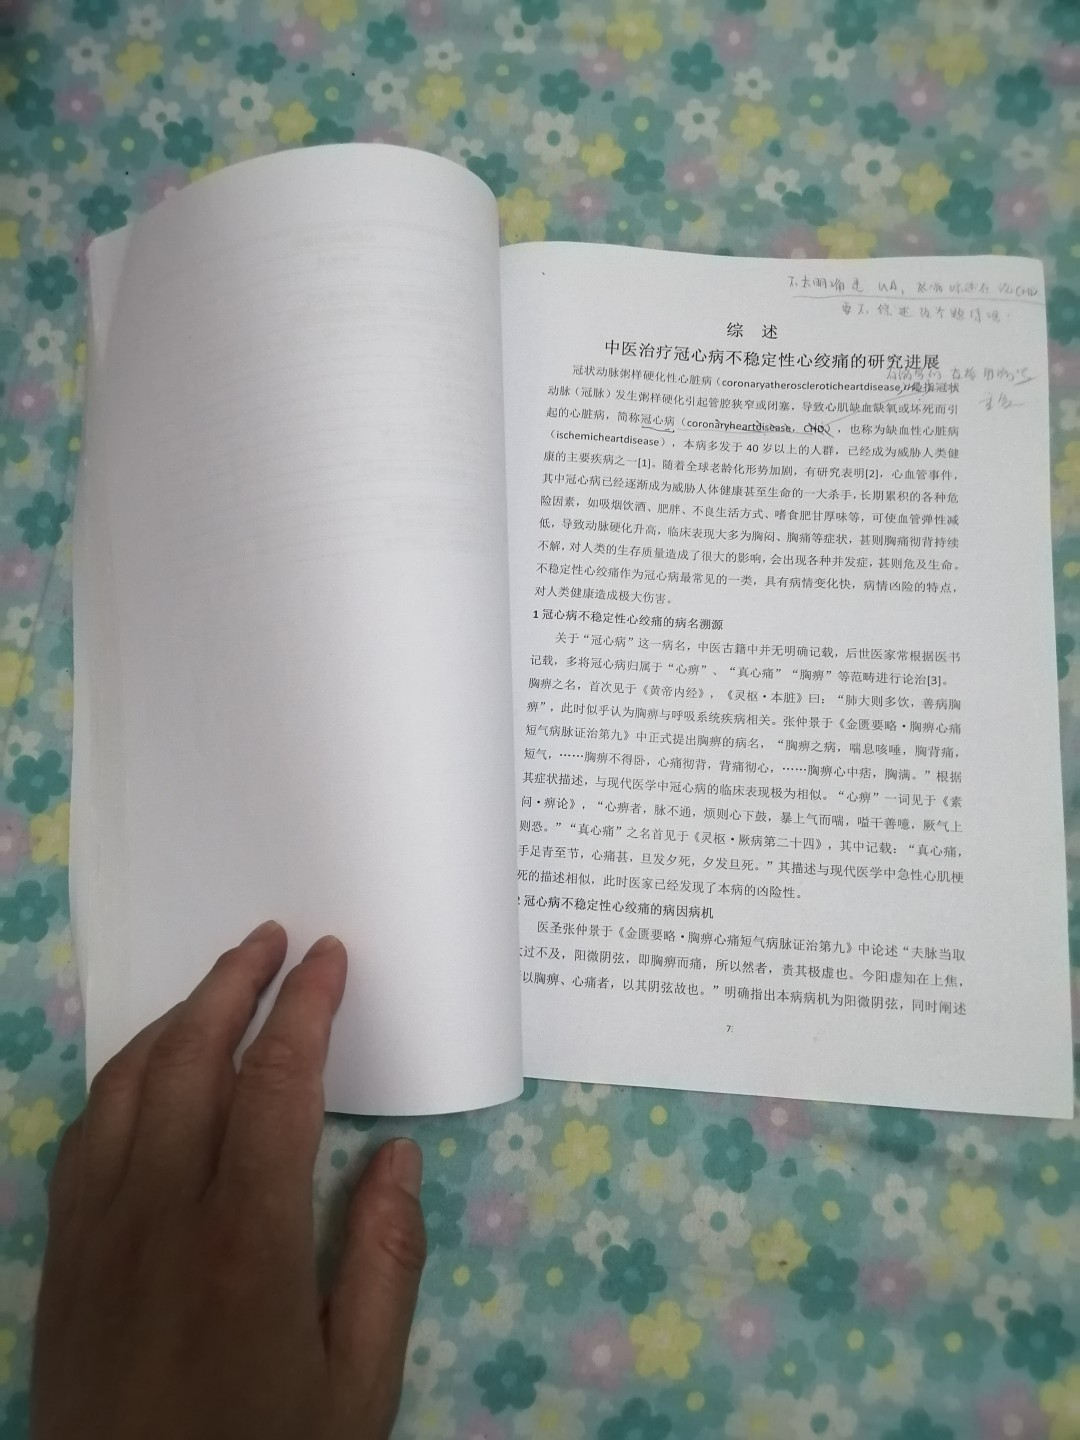 综 述
中医治疗冠心病不稳定性心绞痛的研究进展
冠状动脉粥样硬化性心脏病（coronaryatheroscleroticheartdisease,是指冠状
动脉（冠脉）发生粥样硬化引起管腔狭窄或闭塞，导致心肌缺血缺氧或坏死而引
起的心脏病，简称冠心病（coronaryheartdisease，CHD），也称为缺血性心脏病
（ischemicheartdisease），本病多发于 40 岁以上的人群，已经成为威胁人类健
康的主要疾病之一[1]。随着全球老龄化形势加剧，有研究表明[2]，心血管事件，
其中冠心病已经逐渐成为威胁人体健康甚至生命的一大杀手，长期累积的各种危
险因素，如吸烟饮酒、肥胖、不良生活方式、嗜食肥甘厚味等，可使血管弹性减
低，导致动脉硬化升高，临床表现大多为胸闷、胸痛等症状，甚则胸痛彻背持续
不解，对人类的生存质量造成了很大的影响，会出现各种并发症，甚则危及生命。
不稳定性心绞痛作为冠心病最常见的一类，具有病情变化快，病情凶险的特点，
对人类健康造成极大伤害。
1 冠心病不稳定性心绞痛的病名溯源
关于“冠心病”这一病名，中医古籍中并无明确记载，后世医家常根据医书
记载，多将冠心病归属于“心痹”、“真心痛”“胸痹”等范畴进行论治[3]。
胸痹之名，首次见于《黄帝内经》，《灵枢·本脏》曰：“肺大则多饮，善病胸
痹”，此时似乎认为胸痹与呼吸系统疾病相关。张仲景于《金匮要略·胸痹心痛
短气病脉证治第九》中正式提出胸痹的病名，“胸痹之病，喘息咳唾，胸背痛，
短气，……胸痹不得卧，心痛彻背，背痛彻心，……胸痹心中痞，胸满。”根据
其症状描述，与现代医学中冠心病的临床表现极为相似。“心痹”一词见于《素
问·痹论》，“心痹者，脉不通，烦则心下鼓，暴上气而喘，嗌干善噫，厥气上
则恐。”“真心痛”之名首见于《灵枢·厥病第二十四》，其中记载：“真心痛，
手足青至节，心痛甚，旦发夕死，夕发旦死。”其描述与现代医学中急性心肌梗
死的描述相似，此时医家已经发现了本病的凶险性。
冠心病不稳定性心绞痛的病因病机
医圣张仲景于《金匮要略·胸痹心痛短气病脉证治第九》中论述“夫脉当取
过不及，阳微阴弦，即胸痹而痛，所以然者，责其极虚也。今阳虚知在上焦，
以胸痹、心痛者，以其阴弦故也。”明确指出本病病机为阳微阴弦，同时阐述
7